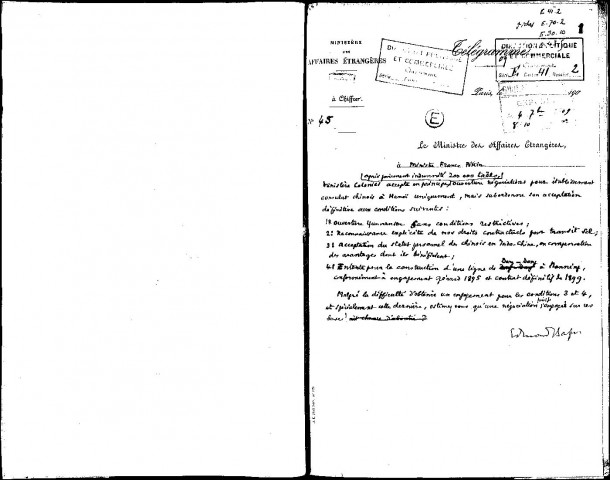 E 41-2
E. 70-2
E. 30. 10
1
MINISTÈRE
DES
AFFAIRES ÉTRANGÈRES
Télégramme
DIRECTION POLITIQUE
ET COMMERCIALE
ET COMMERCIALE
41
2
à Chiffrer.
Paris, le
190
N° 45
E
Le Ministre des Affaires Étrangères,
à Ministre France Pékin
(après paiement indemnité 200 000 taëls)
Ministère Colonies accepte en principe ouverture négociations pour établissement
consulat chinois à Hanoï uniquement, mais subordonne son acceptation
définitive aux conditions suivantes :
1° Ouverture Yunnansen sans conditions restrictives ;
2° Reconnaissance explicite de nos droits contractuels pour transit sel ;
3° acceptation du statut personnel des chinois en Indo-Chine, en compensation
des avantages dont ils bénéficient ;
4° Entente pour la construction d'une ligne de Dong-Dang à Nanning,
conformément à engagement 1895 et contrat définitif de 1899.
Malgré la difficulté d'obtenir un engagement pour les conditions 3 et 4,
et spécialement cette dernière, estimez vous qu'une négociation puisse s'engager sur ces
bases ?